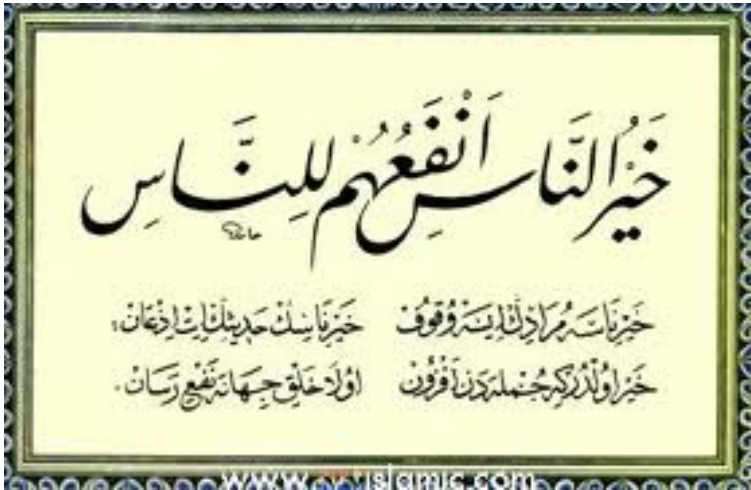 خَيْرُ النَّاسِ اَنْفَعُهُمْ لِلنَّاسِ
حامد
خَيْرِ نَاسَه مُرَادِڭ اِيسَه وُقُوفْ خَيْرِ نَاسِڭ حَدِيثِڭ اِتْ اِذْعَانْ؛
خَيْر اُولْدُرْكِه جُمْلَه دَنْ اَفْزُونْ اُولَا خَلْقِ جِهَانَه نَفْعْ رَسَانْ.
www. islamic.com